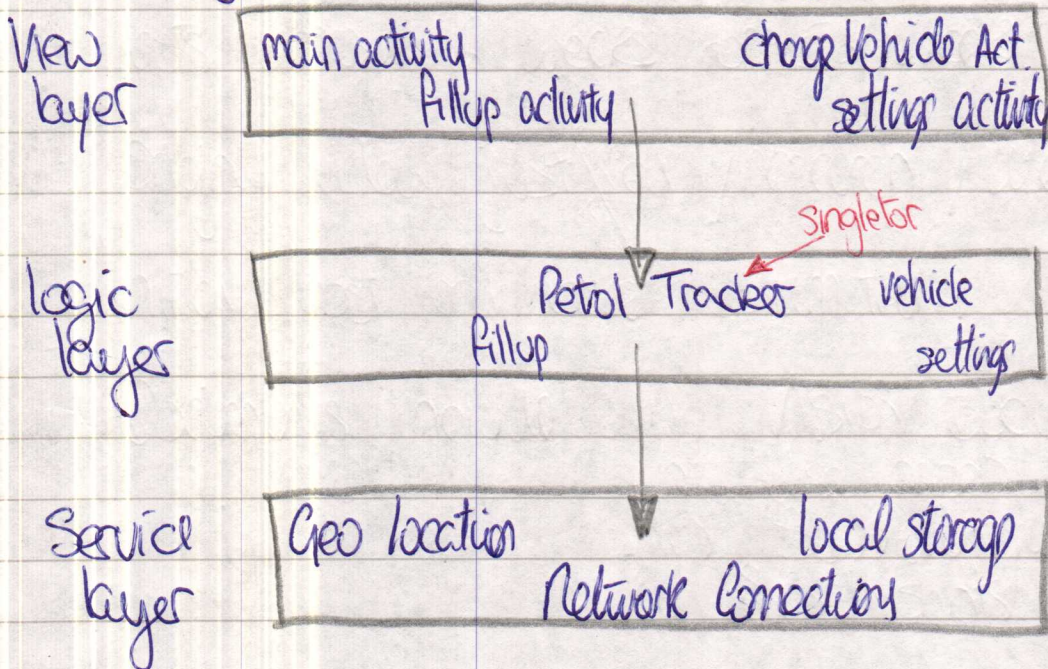 View
layer
main activity
change Vehicle Act.
fillup activity
settings activity
singleton
logic
layer
Petol Tracker
vehicle
fillup
settings
Service
layer
Geo location
local storage
Network Connections